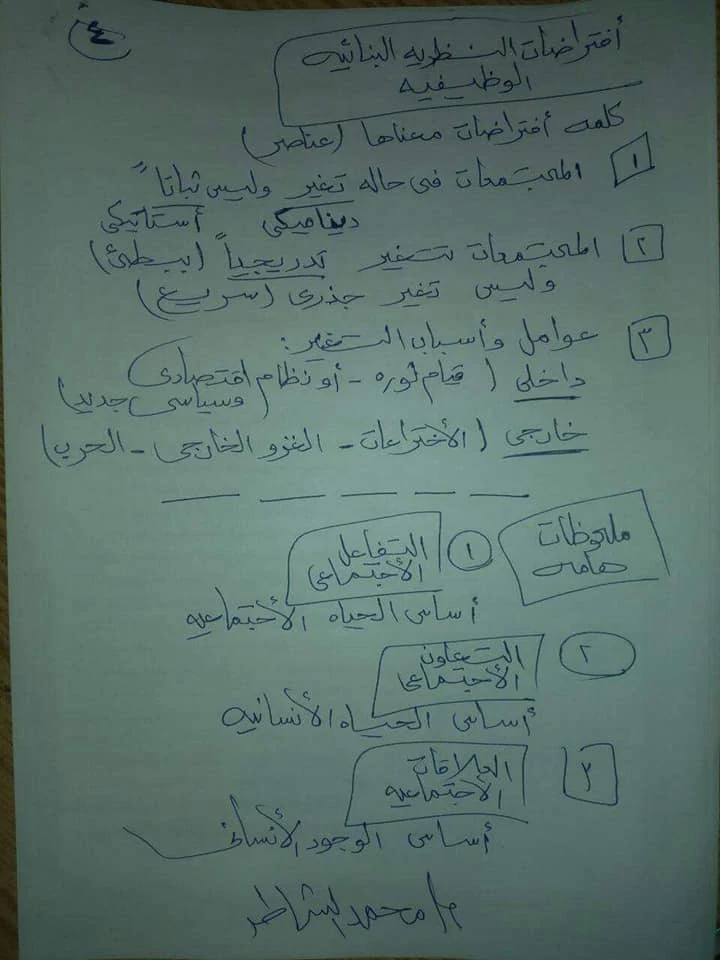 ٤
أفتراضات النظريه البنائيه
الوظيفيه
كلمه أفتراضات معناها (عناصر)
١ المجتمعات فى حاله تغير وليس ثباتاً
ديناميكى أستاتيكى
٢ المجتمعات تتغير تدريجياً (ببطئ)
وليس تغير جذرى (سريع)
٣ عوامل وأسباب التغير:
داخلى (قيام ثوره - أو نظام اقتصادى
وسياسى جديد)
خارجى (الأختراعات - الغزو الخارجى - الحرب)
ملحوظات
هامه
١ التفاعل
الأجتماعى
أساس الحياه الأجتماعيه
٢ التعاون
الأجتماعى
أساس الحياه الأنسانيه
٣ العلاقات
الأجتماعيه
أساس الوجود الأنسانى
م/ محمد الشاطر